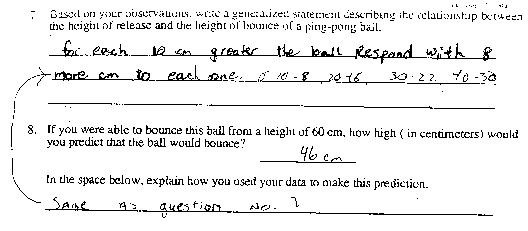 7. Based on your observations, write a generalized statement describing the relationship between
the height of release and the height of bounce of a ping-pong ball.
for each 10 cm greater the ball Respond with 8
more cm to each one. 10-8 20-16 30-22 40-30
8. If you were able to bounce this ball from a height of 60 cm, how high ( in centimeters) would
you predict that the ball would bounce?
46 cm
In the space below, explain how you used your data to make this prediction.
Same as question no. 7